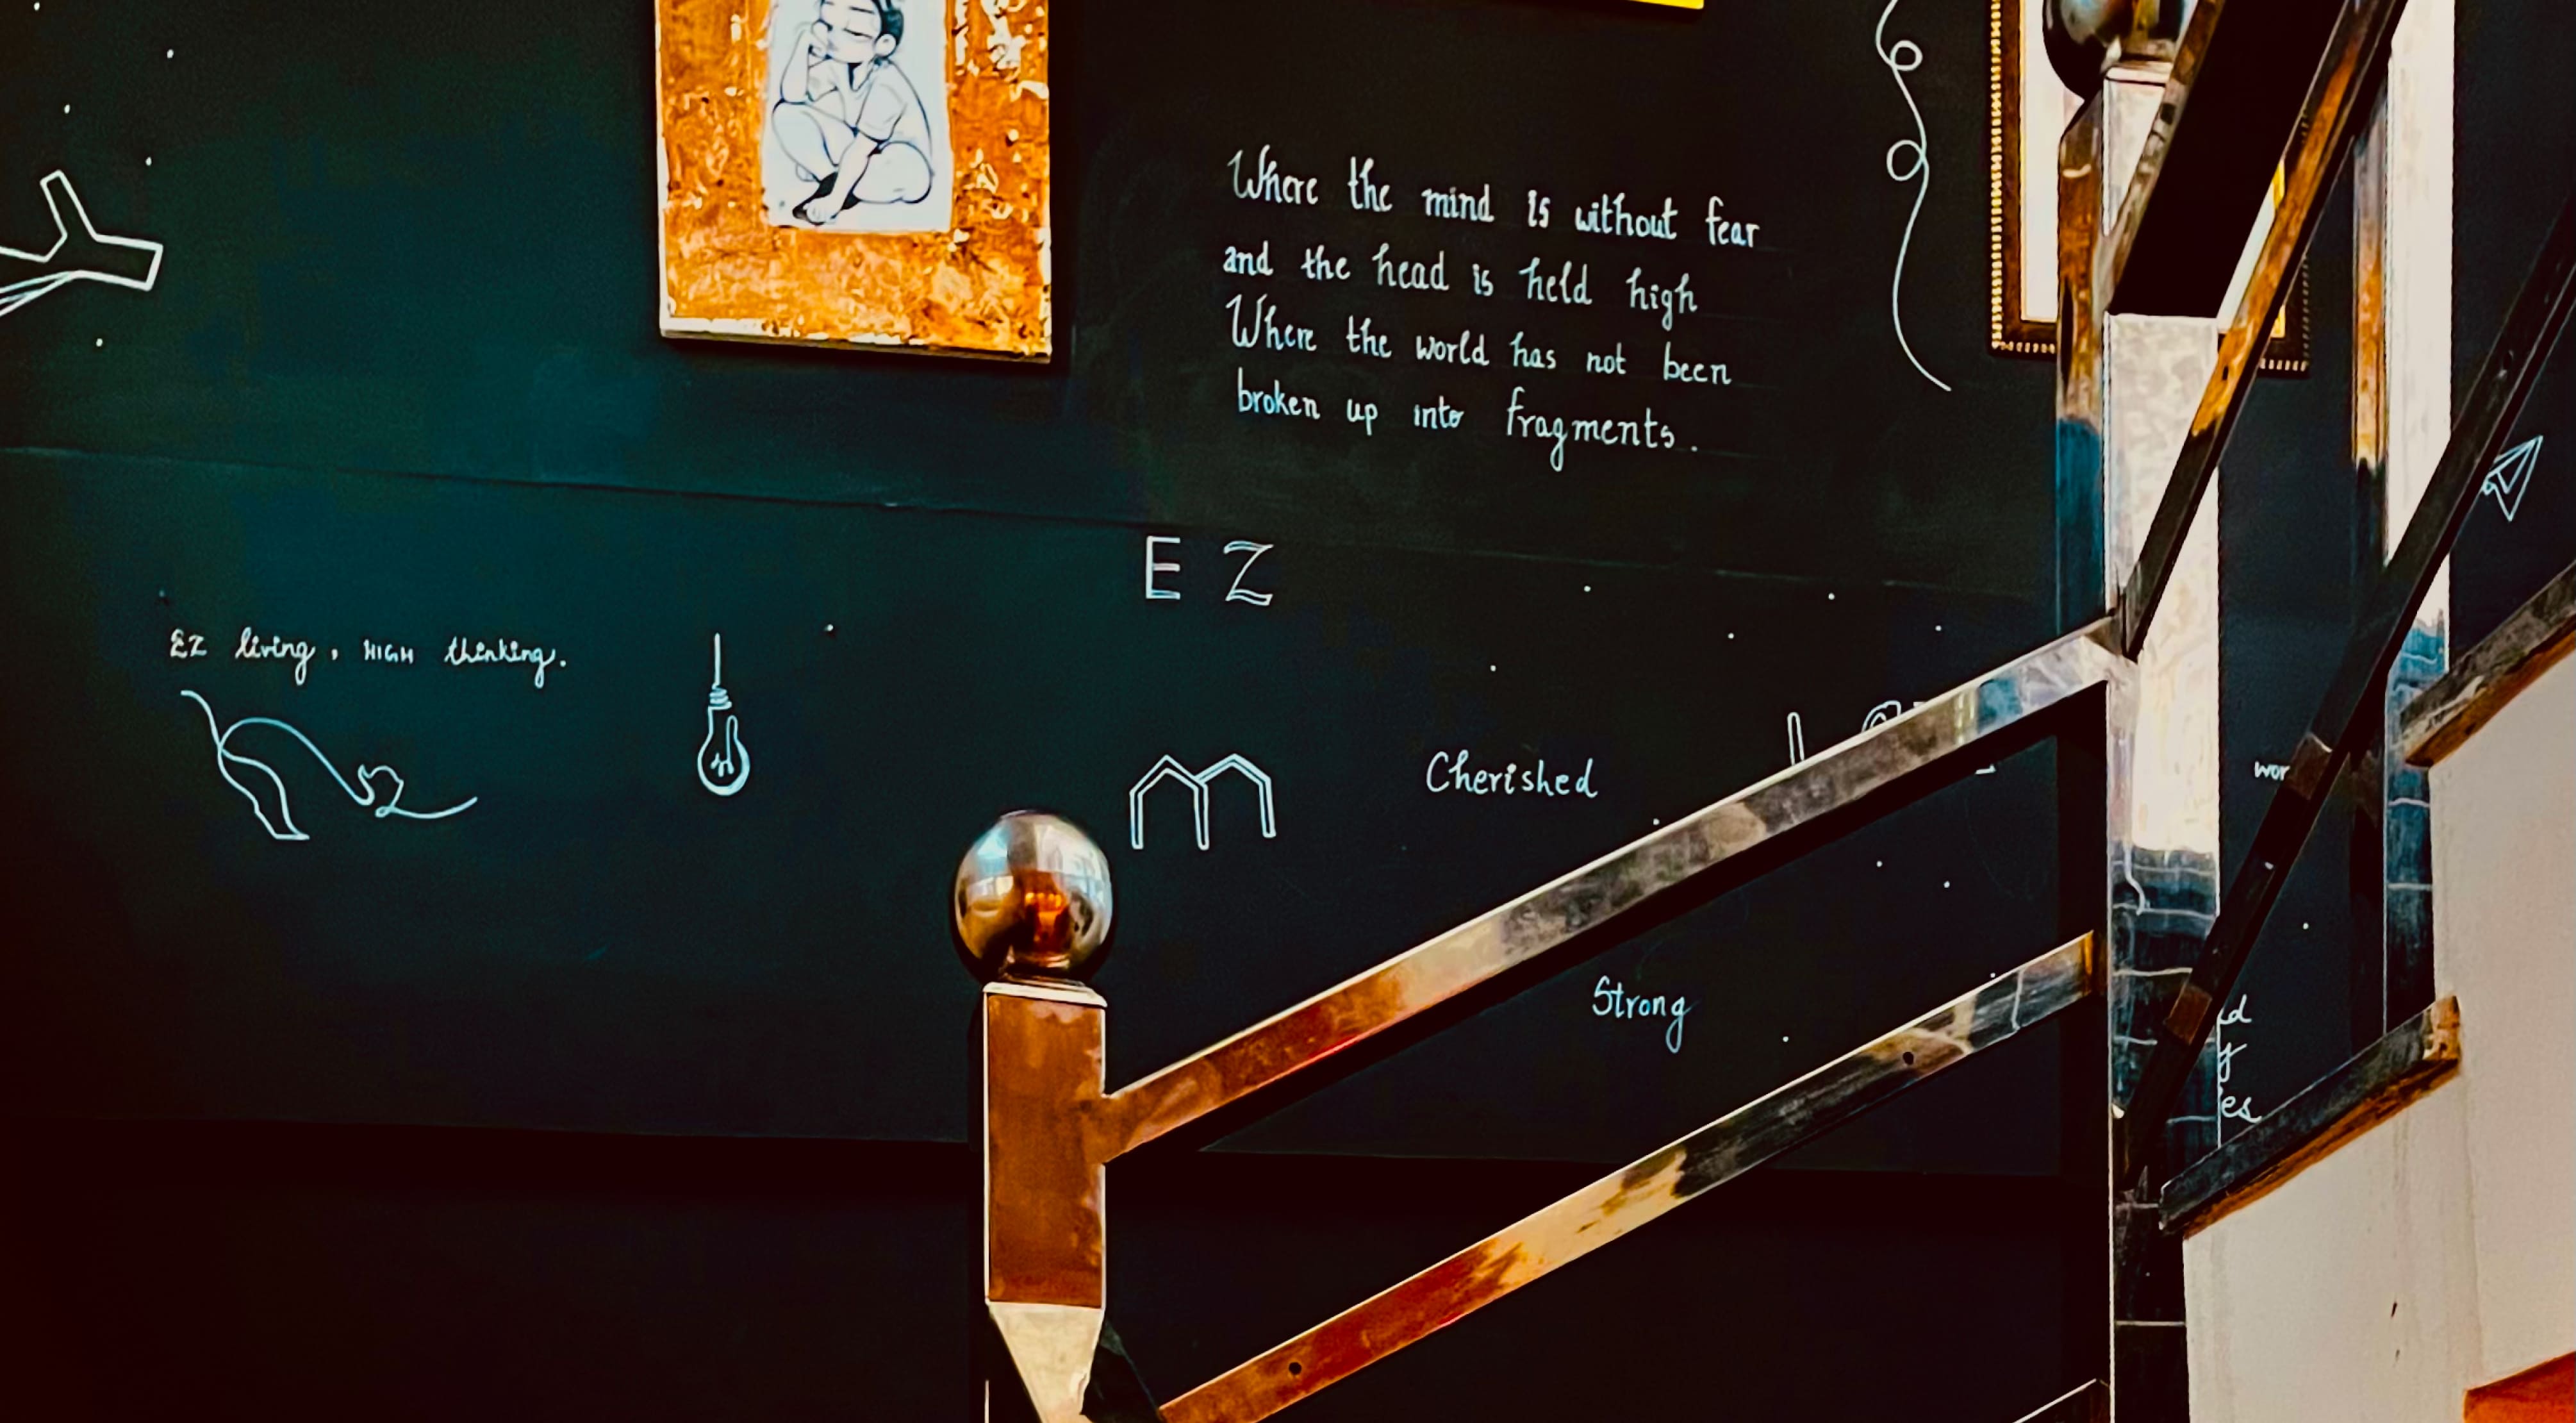 Where the mind is without fear
and the head is held high
Where the world has not been
broken up into fragments.
EZ
EZ living, HIGH thinking.
m
Cherished
Strong